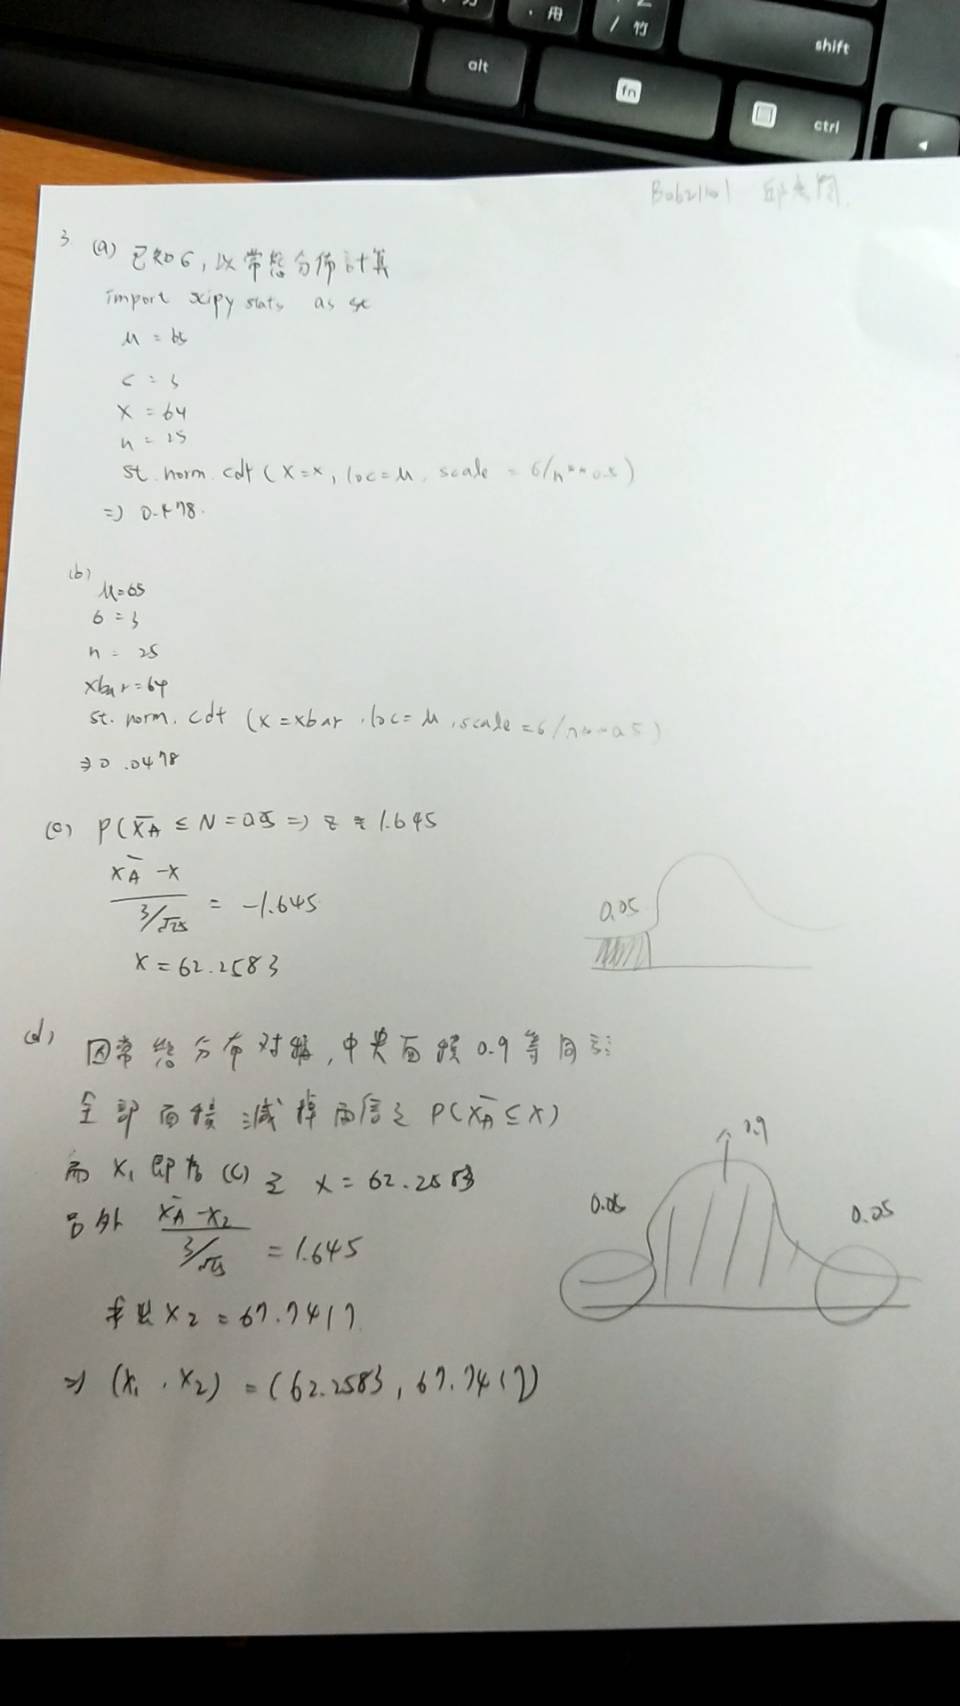 shift
alt
fn
ctrl
3 (a) 已知σ, 以常態分佈計算
import scipy stats as st
μ = 65
σ = 3
x = 64
n = 25
st. norm. cdf (x=x, loc=μ, scale = σ/n**0.5)
=> 0.478.
(b)
μ=65
σ = 3
n = 25
xbar=64
st. norm. cdf (x=xbar, loc=μ, scale=σ/n**0.5)
⇒ 0.0478
(c) P(X̄A ≤ N = 0.05 => z = 1.645
X̄A - x
3/√25 = -1.645
x = 62.2583
0.05
(d) 因常態分布对稱, 中央面積 0.9 等同於
全部面積減掉兩倍之 P(X̄A ≤ x)
而 x₁ 即為 (c) 之 x = 62.2583
另外 X̄A - x₂
3/√25 = 1.645
求出 x₂ = 67.7417
=> (x₁, x₂) = (62.2583, 67.7417)
0.9
0.05
0.05